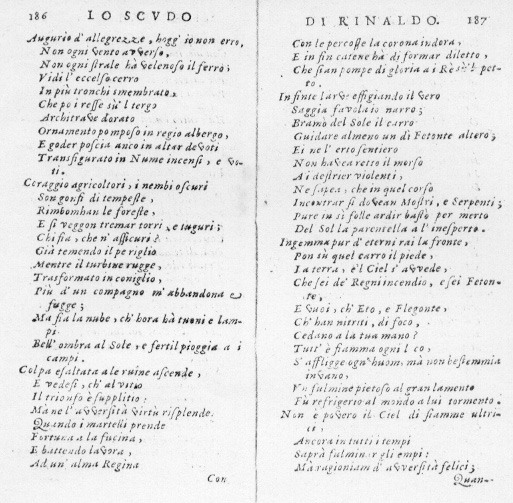 186 LO SCVDO
Augurio d'allegrezze, hogg' io non erro,
Non ogni vento avverso,
Non ogni strale hà velenoso il ferro;
Vidi l'eccelso cerro
In più tronchi smembrato,
Che poi resse sù'l tergo
Architrave dorato
Ornamento pomposo in regio albergo,
E goder poscia anco in altar devoti
Transfigurato in Nume incensi, e vo-
ti.
Coraggio agricoltori, i nembi oscuri
Son gonfi di tempeste,
Rimbomban le foreste,
E si veggon tremar torri, e tuguri;
Chi fia, che n' assicuri?
Già temendo il periglio
Mentre il turbine rugge,
Trasformato in coniglio,
Più d'un compagno m'abbandona e
fugge;
Ma fia la nube, ch'hora hà tuoni e lam-
pi
Bell' ombra al Sole, e fertil pioggia a i
campi.
Colpa esaltata a le ruine ascende,
E vedesi, ch' al vitio
Il trionfo è supplitio:
Mà ne l'avversità virtù risplende.
Quando i martelli prende
Fortuna a la fucina,
E battendo lavora,
Ad un' alma Regina
Con
DI RINALDO. 187
Con le percosse la corona indora,
E in fin catene hà di formar diletto,
Che sian pompe di gloria a i Rè sù'l pet-
to.
In finte larve effigiando il vero
Saggia favola io narro;
Bramò del Sole il carro
Guidare almeno un dì Fetonte altero;
Ei ne l' erto sentiero
Non havea retto il morso
A i destrier violenti,
Ne sapea, che in quel corso
Incontrar si dovean Mostri, e Serpenti;
Pure un sì folle ardir bastò per merto
Del Sol la parentella a l'inesperto.
Ingemma pur d' eterni rai la fronte,
Pon sù quel carro il piede,
La terra, e'l Ciel s'avvede,
Che sei de' Regni incendio, e sei Feton-
te,
E voi, ch' Eto, e Flegonte,
Ch' han nitriti, di foco,
Cedano a la tua mano?
Tutt' è fiamma ogni loco,
S' affligge ogn' huom, mà non bestemmia
in vano,
Un fulmine pietoso al gran lamento
Fù refrigerio al mondo a lui tormento.
Non è povero il Ciel di fiamme ultri-
ci,
Ancora in tutti i tempi
Saprà fulminar gli empi:
Mà ragioniam d' avversità felici;
Quan-